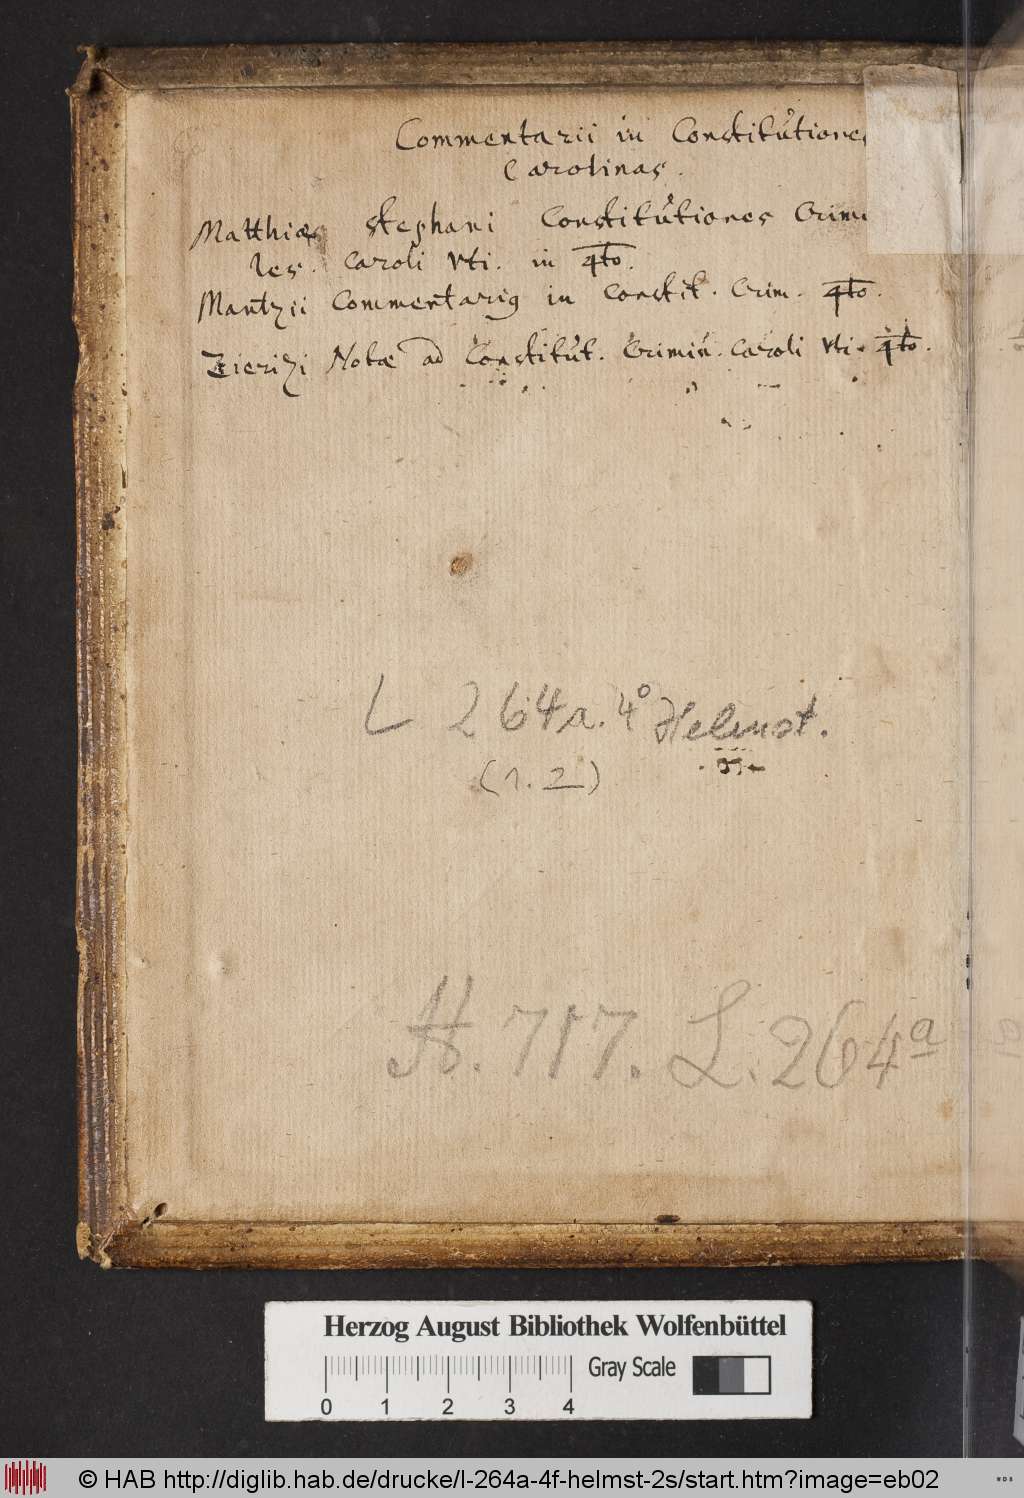 Commentarii in Constitutiones
Carolinas.
Matthiæ Stephani Constitutiones Crimi
les. Caroli Vti. in 4to.
Mantzii Commentarig in Constit. Crim. 4to.
Zieritzi Notæ ad Constitut. Crimin. Caroli Vti. 4to.
L 264a. 4° Helmst.
(1. 2)
H. 717. L. 264a
Herzog August Bibliothek Wolfenbüttel
Gray Scale
0 1 2 3 4
© HAB http://diglib.hab.de/drucke/l-264a-4f-helmst-2s/start.htm?image=eb02